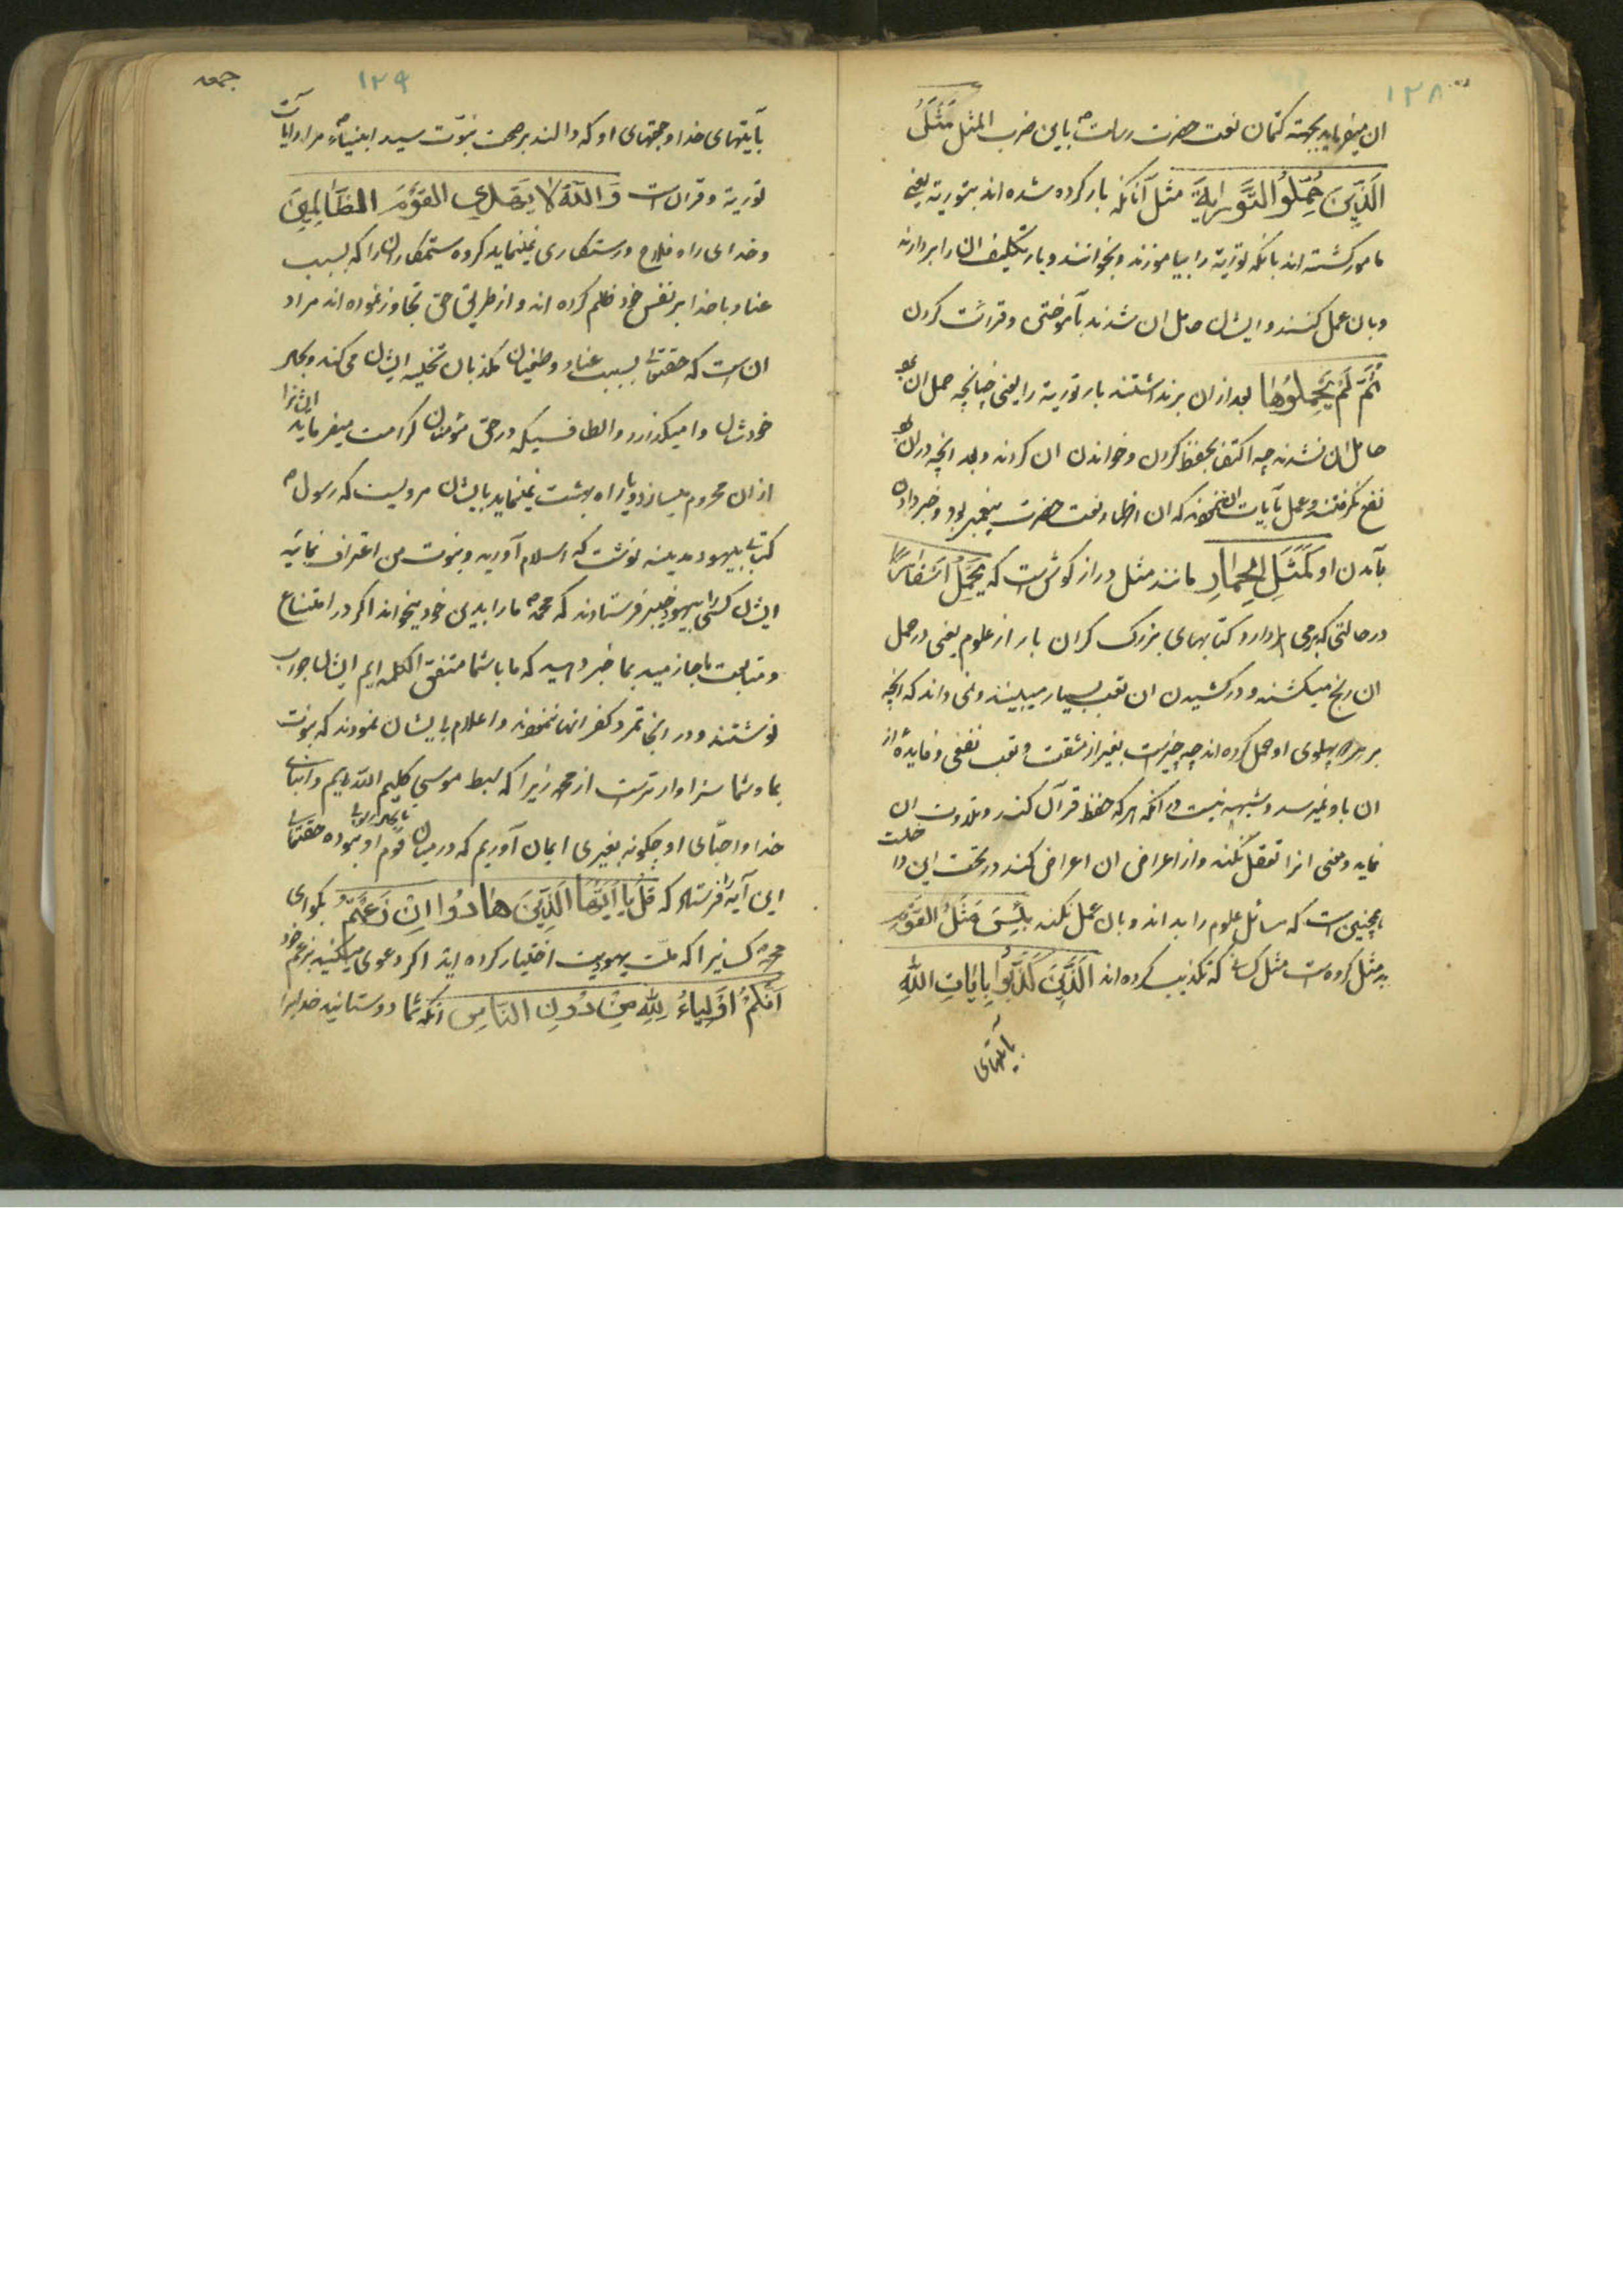 ١٢٨
ان میفرماید بجهته کتمان نعت حضرت رسالت ص باین ضرب المثل مَثَلُ
الَّذِینَ حُمِّلُوا التَّوراىةَ مثل آنانکه بار کرده شده اند بتوریة یعنی
مامور کشته اند بانکه توریة را بیاموزند و بخوانند و بار تکلیف ان را بردارند
و بان عمل کنند و ایشان حامل ان شدند بآموختن و قرائت کردن
ثُمَّ لَمْ یَحْمِلُوهَا بعد از ان برنداشتند بار توریة را یعنی چنانچه حمل ان بود
حامل ان نشدند چه اکتفا بحفظ کردن و خواندن ان کردند و بد انچه در ان بود
نفع نکرفتند و عمل بآیات ان ننمودند که ان اظهار نعت حضرت پیغمبر بود و خبر دادن
بآمدن او کَمَثَلِ الحِمَارِ مانند مثل دراز کوش است که یَحْمِلُ اَسْفَارًا
در حالتی که برمی دارد کتابهای بزرک کران بار از علوم یعنی در حمل
ان رنج میکشند و در کشیدن ان تعب بسیار میبینند و نمی داند که انچه
بر پهلوی او حمل کرده اند چه چیز است بغیر از مشقت و تعب نفعی و فایدهٔ از
ان باو نمیرسد و شبهه نیست در انکه هر که حفظ قرآن کند و تلاوت ان
نماید و معنی انرا تعقل نکند و از اعراض ان اعراض کند در تحت این داخلست
همچنین است که مسائل علوم را بداند و بان عمل نکند بِئْسَ مَثَلُ القَوْمِ
بد مثل کروه ست مثل کسانی که تکذیب کرده اند الَّذِینَ کَذَّبُوا بِایَاتِ اللهِ
بآیتهای
١٢٩
جمعه
بآیتهای خدا و حجتهای او که دالند بر صحت نبوّت سید انبیاء ص مراد آیات
توریة و قران است وَاللهُ لا یَهْدِی القَوْمَ الظَّالِمِینَ
و خدای راه فلاح و رستکاری نمینماید کروه ستمکاران را که بسبب
عناد با خدا بر نفس خود ظلم کرده اند و از طریق حق تجاوز نموده اند مراد
ان است که حقتعالی بسبب عناد و طغیان مکذبان تخلیه ایشان می کند و بحال
خودشان وا میکذارد و الطافیکه در حق مؤمنان کرامت میفرماید ایشانرا
از ان محروم میسازد و یا راه بهشت نمینماید بایشان مرویست که رسول ص
کتابی بیهود مدینه نوشت که اسلام آورید و بنبوت من اعتراف نمائید
ایشان کسی را بیهود خیبر فرستادند که محمد ص ما را بدین خود میخواند اکر در امتناع
و متابعت ما جازمید بما خبر دهید که ما با شما متفق الکلمه ایم ایشان جواب
نوشتند و در انجا تمرد و کفر انها نمودند و اعلام بایشان نمودند که نبوت
بما و شما سزاوار ترست از محمد زیرا که سبط موسی کلیم الله ایم و ابنای
خدا و احبّای او چکونه بغیری ایمان آوریم که در میان قوم او نبوده حقتعالی
این آیه را فرستاد که قُلْ یَا اَیُّهَا الَّذِینَ هَادُوا اِنْ زَعَمْتُم بکو ای
محمد ص کسانیرا که ملت یهودیت اختیار کرده اند اکر دعوی میکنید بزعم خود
اَنَّکُمْ اَوْلِیَاءُ لِلّٰهِ مِنْ دُونِ النَّاسِ انکه شما دوستانید خدایرا